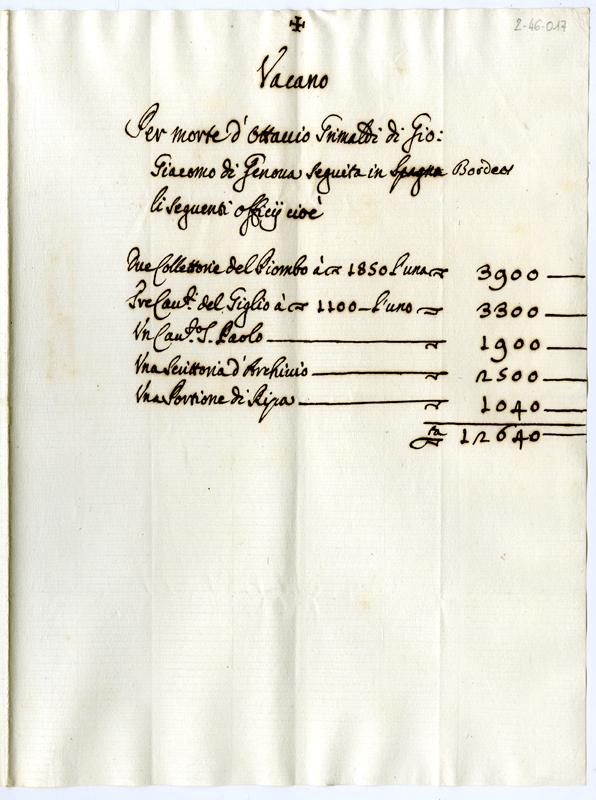 ✠
2-46-017
Vacano
Per morte d'Ottavio Grimaldi di Gio:
Giacomo di Genova seguita in Spagna Bordeos
li seguenti officij cioè
Due Collettorie del Piombo à 1850 l'una 3900
Tre Cau.ti del Giglio à 1100 l'uno 3300
Un Cau.to S. Paolo 1900
Una Scrittoria d'Archivio 2500
Una Portione di Ripa 1040
12640